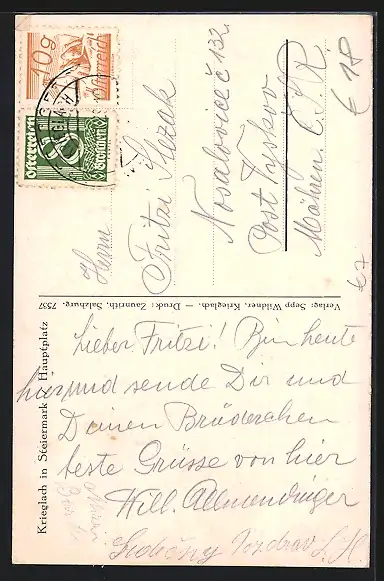 10g
Österreich
8
Österreich
Groschen
Herrn
Fritzi Slezak
Nosalovice č 132
Post Vyskov
Mähren. Č.S.R.
€ 18
€ 7
Verlag: Sepp Wildner, Krieglach. — Druck: Zaunrith, Salzburg. 7557
Krieglach in Steiermark Hauptplatz
Lieber Fritzi! Bin heute
hier und sende Dir und
Deinen Brüderchen
beste Grüsse von hier
Will. Allmendinger
Srdečný Pozdrav